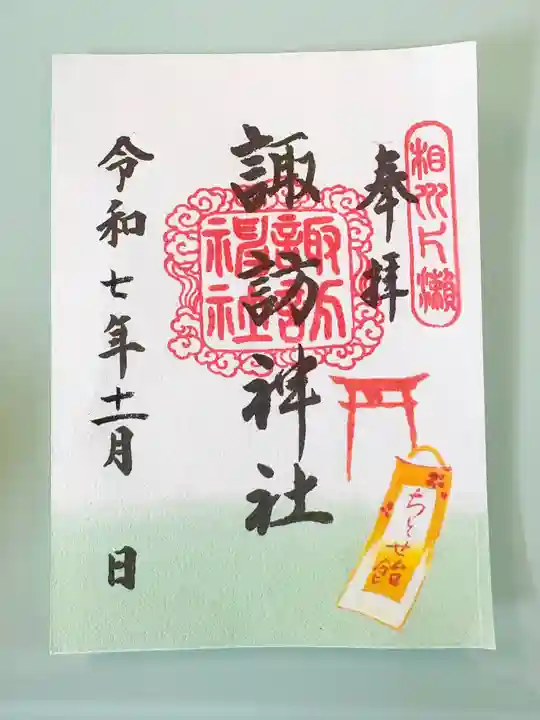 相州片瀬
奉拝
諏訪神社
諏訪神社
令和七年十一月 日
ちとせ飴